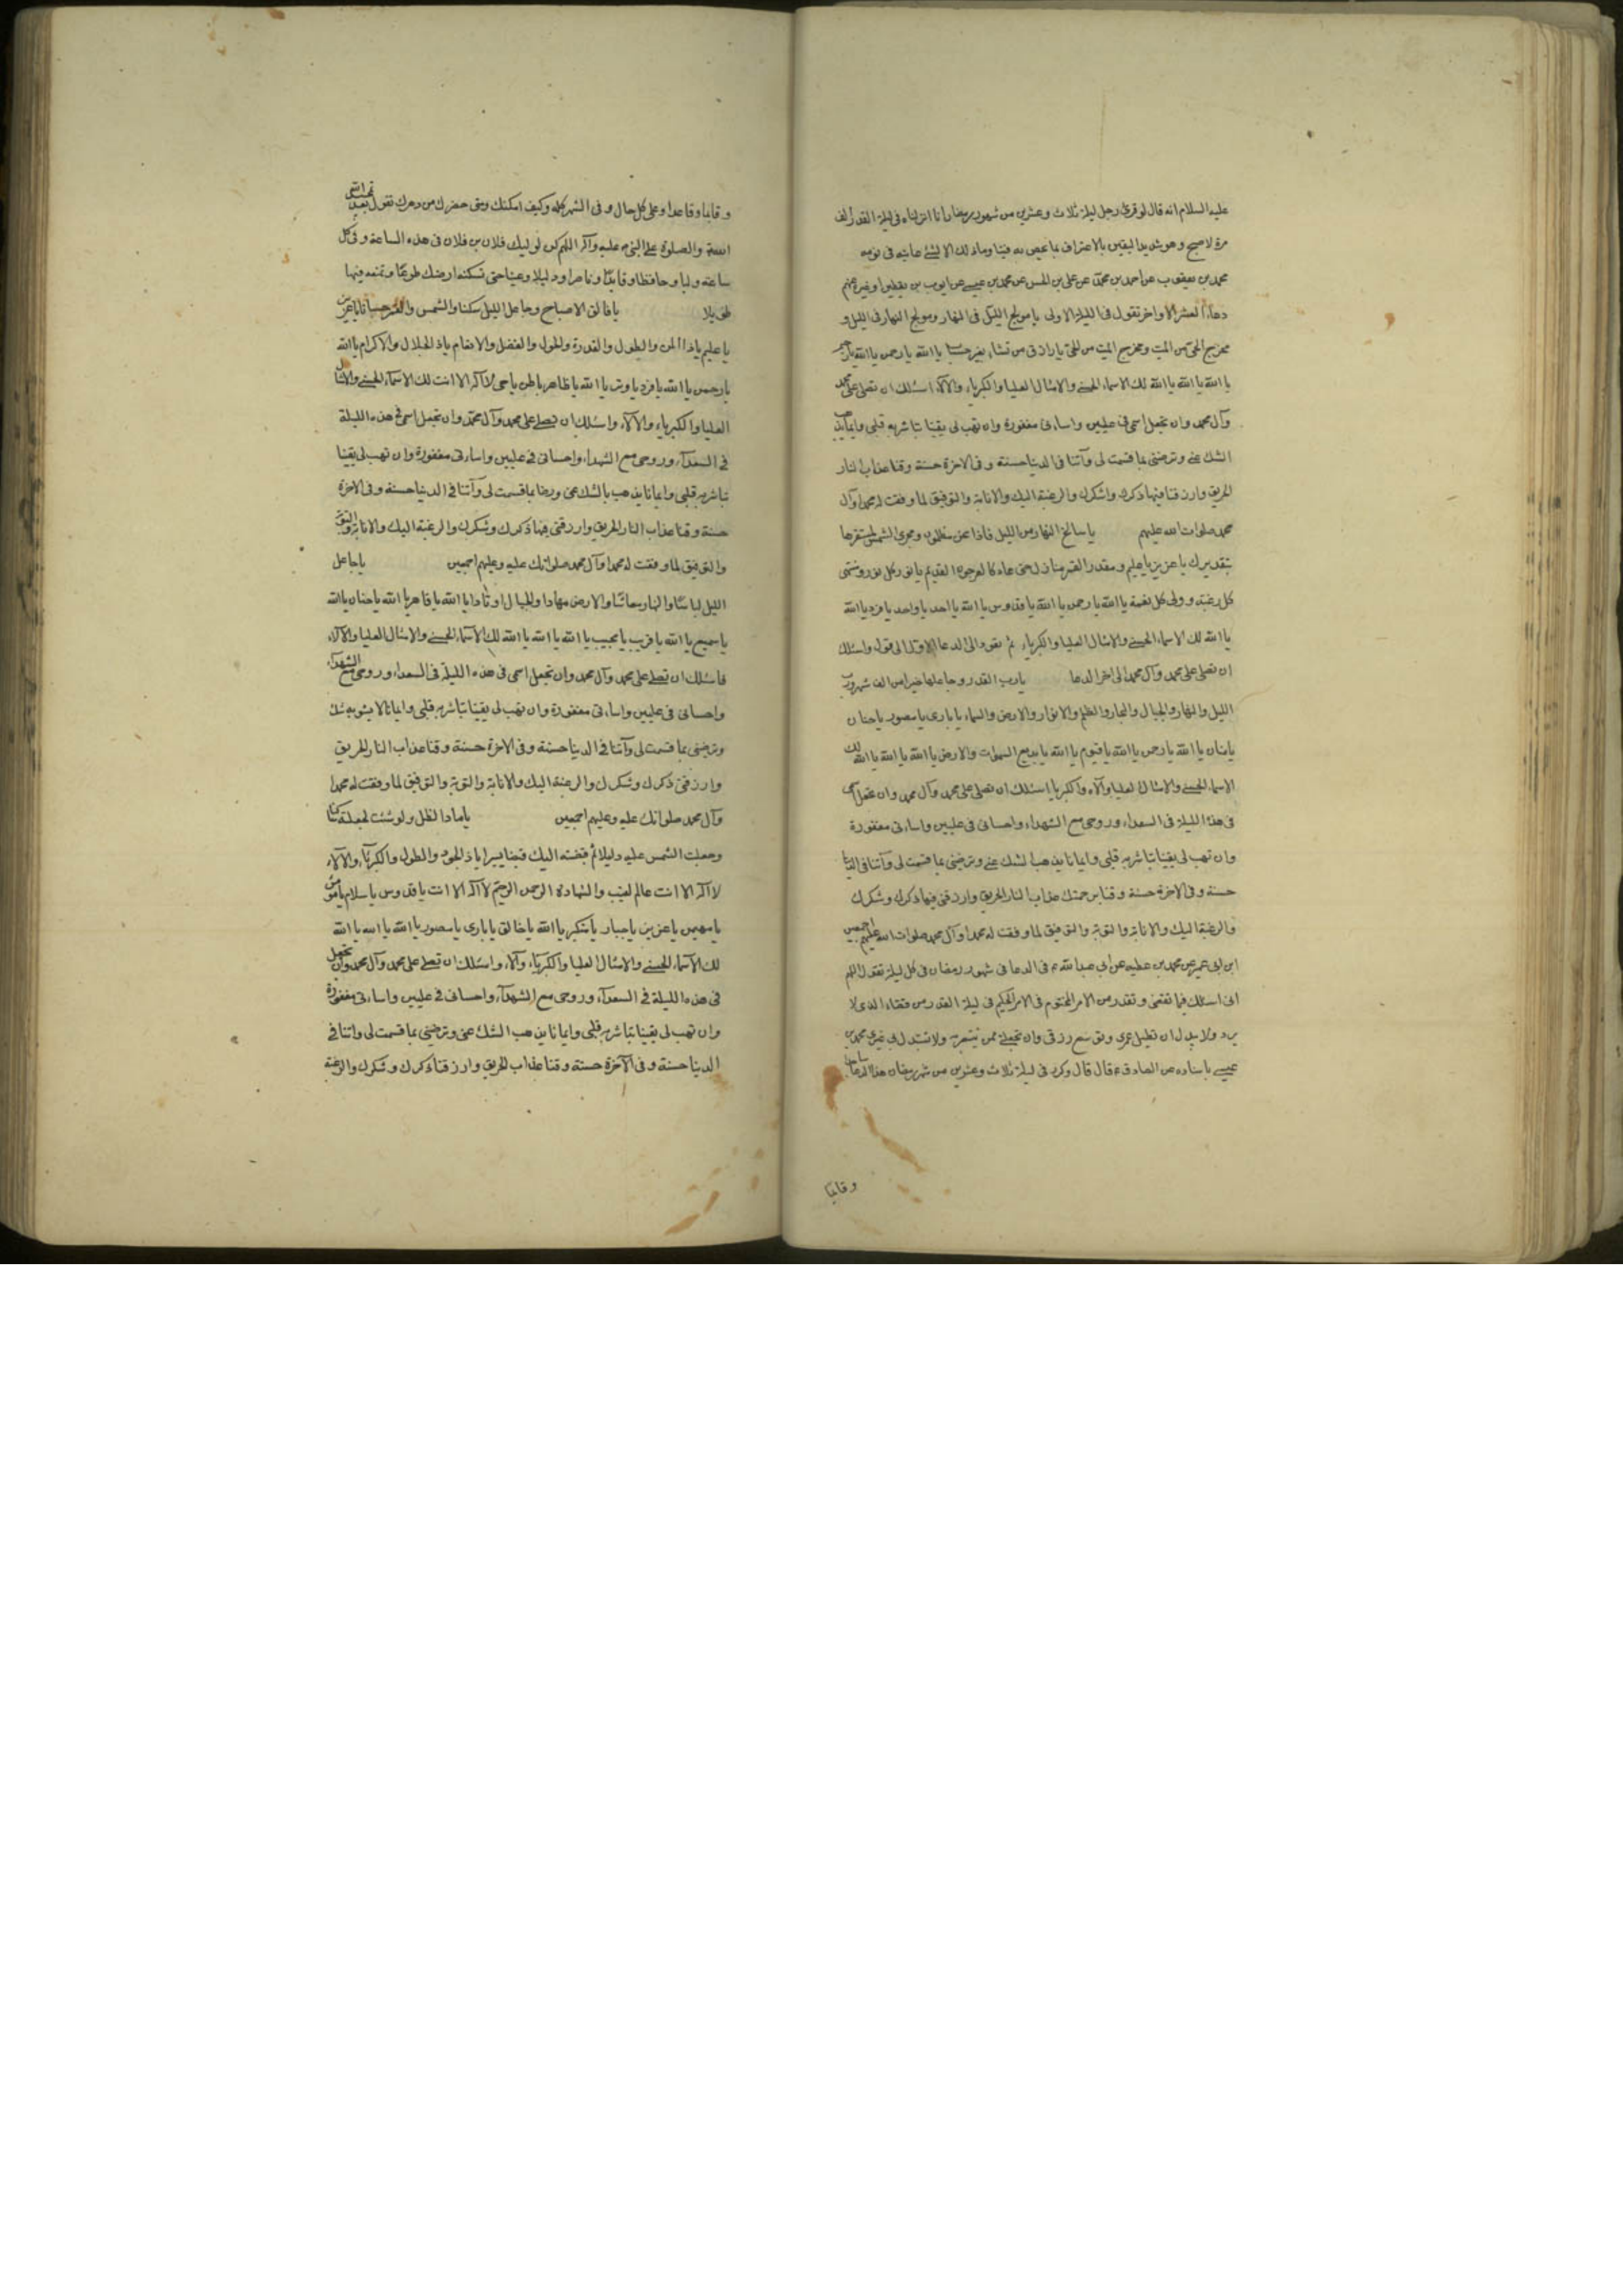 عليه السلام انه قال لو قرئ رجل ليلة ثلاث وعشرين من شهر رمضان انا انزلناه في ليلة القدر الف
مرة لاصبح وهو شديد اليقين بالاعتراف بما يخص به فينا وما ذلك الا لشئ عاينه في نومه
محمد بن يعقوب عن احمد بن محمد عن علي بن الحسن عن محمد بن عيسى عن ايوب بن يقطين او غيره عنهم
دعاء العشر الاواخر تقول في الليلة الاولى يا مولج الليل في النهار ومولج النهار في الليل و
مخرج الحي من الميت ومخرج الميت من الحي يا رازق من تشاء بغير حساب يا الله يا رحمن يا الله يا رحيم
يا الله يا الله يا الله لك الاسماء الحسنى والامثال العليا والكبرياء والالاء اسئلك ان تصلي على محمد
وآل محمد وان تجعل اسمي في عليين واسائتي مغفورة وان تهب لي يقينا تباشر به قلبي وايمانا يذهب
الشك عني وترضيني بما قسمت لي وآتنا في الدنيا حسنة وفي الاخرة حسنة وقنا عذاب النار
الحريق وارزقنا فيها ذكرك واشكرك والرغبة اليك والانابة والتوفيق لما وفقت له محمدا وآل
محمد صلوات الله عليهم يا سالخ النهار من الليل فاذا نحن مظلمون ومجري الشمس لمستقرها
بتقديرك يا عزيز يا عليم ومقدر القمر منازل حتى عاد كالعرجون القديم يا نور كل نور ومنتهى
كل رغبة وولي كل نعمة يا الله يا رحمن يا الله يا قدوس يا الله يا احد يا واحد يا فرد يا الله
يا الله لك الاسماء الحسنى والامثال العليا والكبرياء ثم تعود الى الدعا الاول الى قوله واسئلك
ان تصلي على محمد وآل محمد الى اخر الدعا يا رب القدر وجاعلها خيرا من الف شهر ورب
الليل والنهار والجبال والبحار والظلم والانوار والارض والسماء يا باري يا مصور يا حنان
يا منان يا الله يا رحمن يا الله يا قيوم يا الله يا بديع السموات والارض يا الله يا الله يا الله لك
الاسماء الحسنى والامثال العليا والآلاء والكبريا اسئلك ان تصلي على محمد وآل محمد وان تجعل اسمي
في هذه الليلة في السعداء وروحي مع الشهداء واحساني في عليين واسائتي مغفورة
وان تهب لي يقينا تباشر به قلبي وايمانا يذهب الشك عني وترضيني بما قسمت لي وآتنا في الدنيا
حسنة وفي الاخرة حسنة وقنا برحمتك عذاب النار الحريق وارزقني فيها ذكرك وشكرك
والرغبة اليك والانابة والتوبة والتوفيق لما وفقت له محمدا وآل محمد صلوات الله عليهم اجمعين
ابن ابي عمير عن محمد بن عطيه عن ابي عبد الله ع في الدعا في شهر رمضان في كل ليلة تقول اللهم
اني اسئلك فيما تقضي وتقدر من الامر المحتوم في الامر الحكيم في ليلة القدر من القضاء الذي لا
يرد ولا يبدل ان تطيل عمري وتوسع رزقي وان تجعلني ممن تنتصر به ولا تستبدل بي غيري محمد بن
عيسى باسناده عن الصادق ع قال قال وكرر في ليلة ثلاث وعشرين من شهر رمضان هذا الدعا ساجدا
وقائما
وقائما وقاعدا وعلى كل حال وفي الشهر كله وكيف امكنك ومتى حضرك من دهرك تقول بعد تحميد الله
والصلوة على النبي عليه وآله اللهم كن لوليك فلان بن فلان في هذه الساعة وفي كل
ساعة وليا وحافظا وقائدا وناصرا ودليلا وعينا حتى تسكنه ارضك طوعا وتمتعه فيها
طويلا يا فالق الاصباح وجاعل الليل سكنا والشمس والقمر حسبانا يا عزيز
يا عليم يا ذا المن والطول والقدرة والحول والفضل والانعام يا ذا الجلال والاكرام يا الله
يا رحمن يا الله يا فرد يا وتر يا الله يا ظاهر يا باطن يا حي لا اله الا انت لك الاسماء الحسنى والامثال
العليا والكبرياء والآلاء واسئلك ان تصلي على محمد وآل محمد وان تجعل اسمي في هذه الليلة
في السعداء وروحي مع الشهداء واحساني في عليين واسائتي مغفورة وان تهب لي يقينا
تباشر به قلبي وايمانا يذهب بالشك عني ورضا بما قسمت لي وآتنا في الدنيا حسنة وفي الاخرة
حسنة وقنا عذاب النار الحريق وارزقني فيها ذكرك وشكرك والرغبة اليك والانابة والتوبة
والتوفيق لما وفقت له محمدا وآل محمد صلواتك عليه وعليهم اجمعين يا جاعل
الليل لباسا والنهار معاشا والارض مهادا والجبال اوتادا يا الله يا قاهر يا الله يا حنان يا الله
يا سميع يا الله يا قريب يا مجيب يا الله يا الله يا الله لك الاسماء الحسنى والامثال العليا والآلاء
فاسئلك ان تصلي على محمد وآل محمد وان تجعل اسمي في هذه الليلة في السعداء وروحي مع الشهداء
واحساني في عليين واسائتي مغفورة وان تهب لي يقينا تباشر به قلبي وايمانا لا يشوبه شك
وترضيني بما قسمت لي وآتنا في الدنيا حسنة وفي الاخرة حسنة وقنا عذاب النار الحريق
وارزقني ذكرك وشكرك والرغبة اليك والانابة والتوبة والتوفيق لما وفقت له محمدا
وآل محمد صلواتك عليه وعليهم اجمعين يا ماد الظل ولو شئت لجعلته ساكنا
وجعلت الشمس عليه دليلا ثم قبضته اليك قبضا يسيرا يا ذا الجود والطول والكبرياء والآلاء
لا اله الا انت عالم الغيب والشهادة الرحمن الرحيم لا اله الا انت يا قدوس يا سلام يا مؤمن
يا مهيمن يا عزيز يا جبار يا متكبر يا الله يا خالق يا باري يا مصور يا الله يا الله يا الله
لك الاسماء الحسنى والامثال العليا والكبرياء والآلاء واسئلك ان تصلي على محمد وآل محمد وان تجعل
في هذه الليلة في السعداء وروحي مع الشهداء واحساني في عليين واسائتي مغفورة
وان تهب لي يقينا تباشر به قلبي وايمانا يذهب الشك عني وترضيني بما قسمت لي واتنا في
الدنيا حسنة وفي الآخرة حسنة وقنا عذاب الحريق وارزقنا ذكرك وشكرك والرغبة